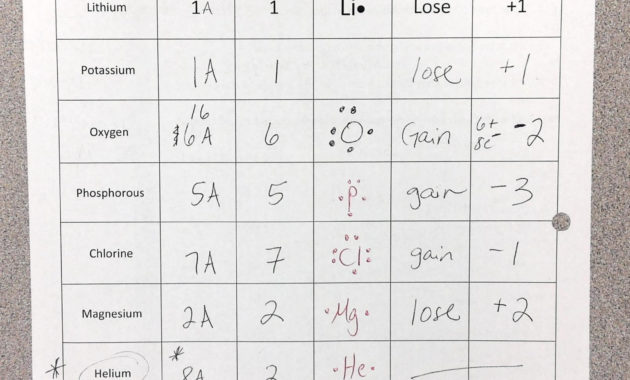 Lithium 1A 1 Li• Lose +1
Potassium 1A 1 lose +1
16
Oxygen 6A 6 O Gain 6+ 8e- -2
Phosphorous 5A 5 P gain -3
Chlorine 7A 7 Cl gain -1
Magnesium 2A 2 •Mg• lose +2
* Helium * 8A 2 •He•